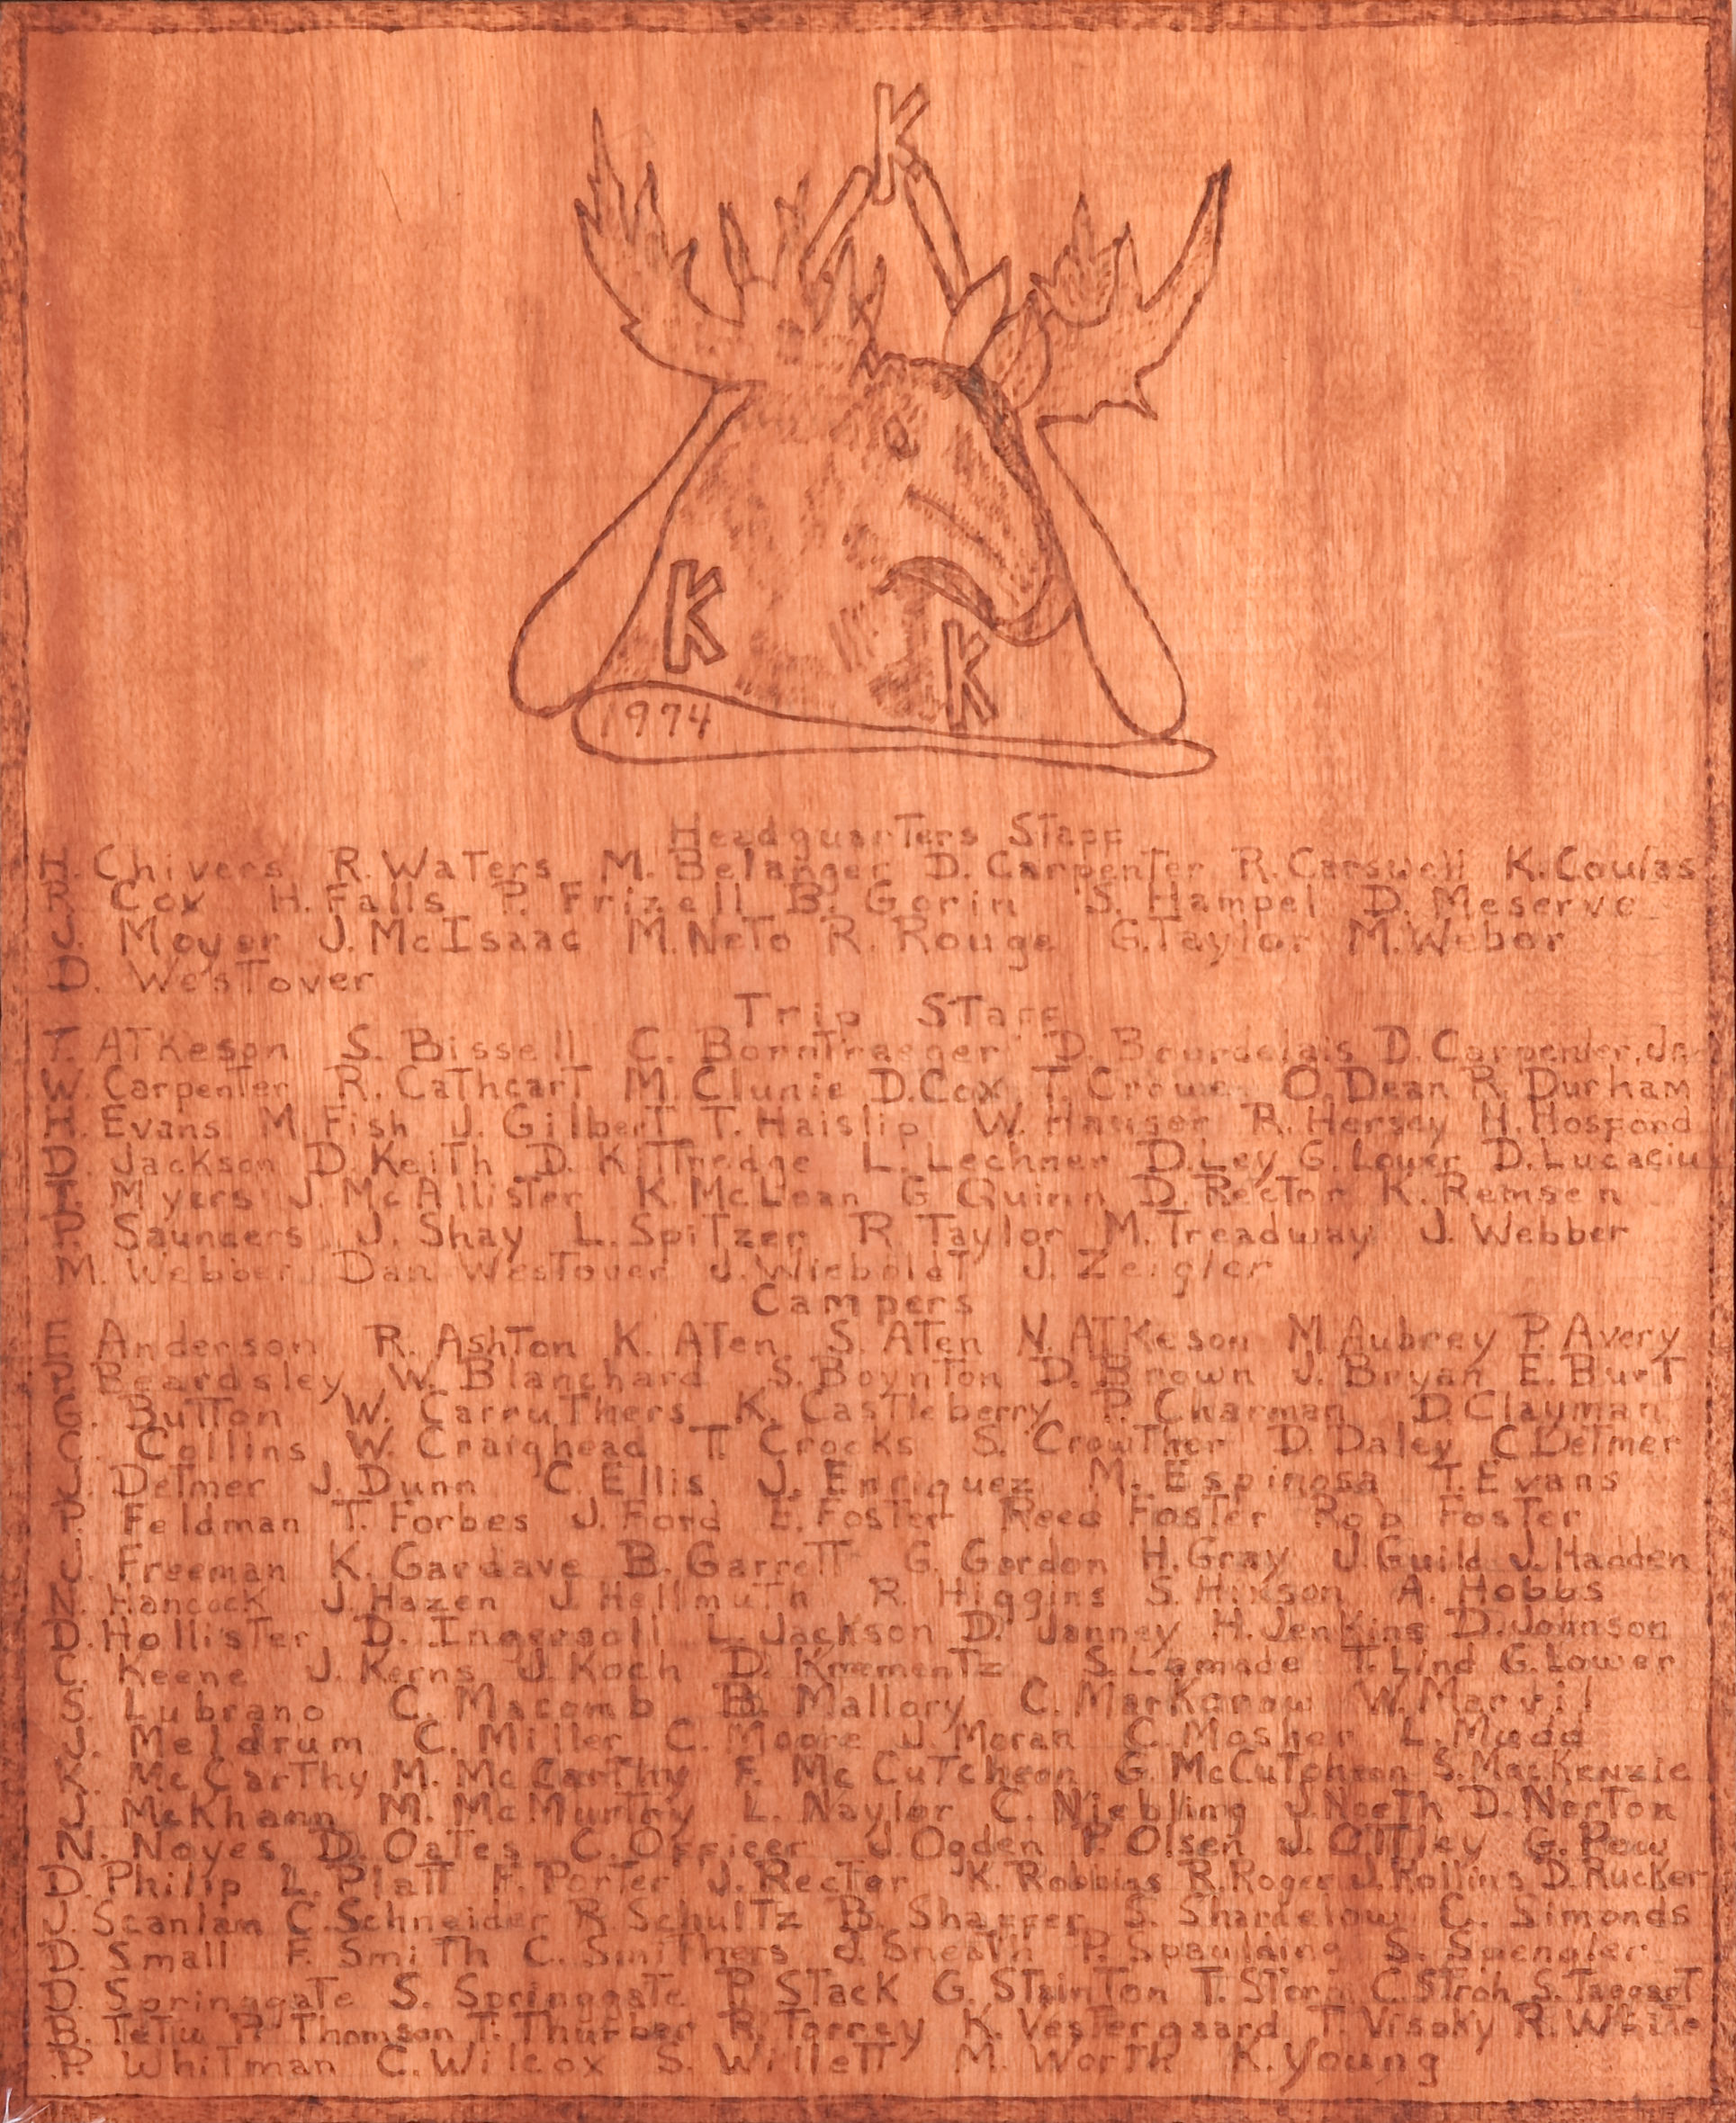 K
K
K
1974
Headquarters Staff
H. Chivers R. Waters M. Belanger D. Carpenter R. Carswell K. Coulas
R. Cox H. Falls P. Frizell B. Gorin S. Hampel D. Meserve
J. Moyer J. McIsaac M. Neto R. Rouge G. Taylor M. Weber
D. Westover
Trip Staff
T. Atkeson S. Bissell C. Borntraeger D. Bourdelais D. Carpenter, Jr.
W. Carpenter R. Cathcart M. Clunie D. Cox T. Crowe O. Dean R. Durham
H. Evans M. Fish J. Gilbert T. Haislip W. Hauser R. Hersey H. Hosford
D. Jackson D. Keith D. Kittredge L. Lechner D. Ley G. Lower D. Lucaciu
T. Myers J. McAllister K. McLean G. Quinn D. Rector K. Remsen
P. Saunders J. Shay L. Spitzer R. Taylor M. Treadway J. Webber
M. Webber Dan Westover J. Wieboldt J. Zeigler
Campers
E. Anderson R. Ashton K. Aten S. Aten N. Atkeson M. Aubrey P. Avery
P. Beardsley W. Blanchard S. Boynton D. Brown J. Bryan E. Burt
G. Button W. Carruthers K. Castleberry P. Charman D. Clayman
C. Collins W. Craighead T. Crocks S. Crowther D. Daley C. Detmer
J. Detmer J. Dunn C. Ellis J. Enriquez M. Espinosa T. Evans
P. Feldman T. Forbes J. Ford E. Foster Reed Foster Rob Foster
J. Freeman K. Gardave B. Garrett G. Gordon H. Gray J. Guild J. Hadden
N. Hancock J. Hazen J. Hellmuth R. Higgins S. Hixson A. Hobbs
D. Hollister D. Ingersoll L. Jackson D. Janney H. Jenkins D. Johnson
C. Keene J. Kerns J. Koch D. Krementz S. Lamade T. Lind G. Lower
S. Lubrano C. Macomb B. Mallory C. Markonow W. Marvil
J. Meldrum C. Miller C. Moore J. Moran C. Mosher L. Mudd
K. McCarthy M. McCarthy F. McCutcheon G. McCutcheon S. MacKenzie
J. McKhann M. McMurtry L. Naylor C. Niebling J. North D. Norton
N. Noyes D. Oates C. Officer J. Ogden P. Olsen J. Ottley G. Pow
D. Philip L. Platt F. Porter J. Rector K. Robbins R. Roger J. Rollins D. Rucker
J. Scanlam C. Schneider R. Schultz B. Shaffer S. Shardelow C. Simonds
D. Small F. Smith C. Smithers J. Sneath P. Spaulding S. Spengler
D. Springgate S. Springgate P. Stack G. Stainton T. Storm C. Stroh S. Taggart
B. Tetu P. Thomson T. Thurber R. Torrey K. Vestergaard T. Visoky R. White
P. Whitman C. Wilcox S. Willett M. Worth K. Young